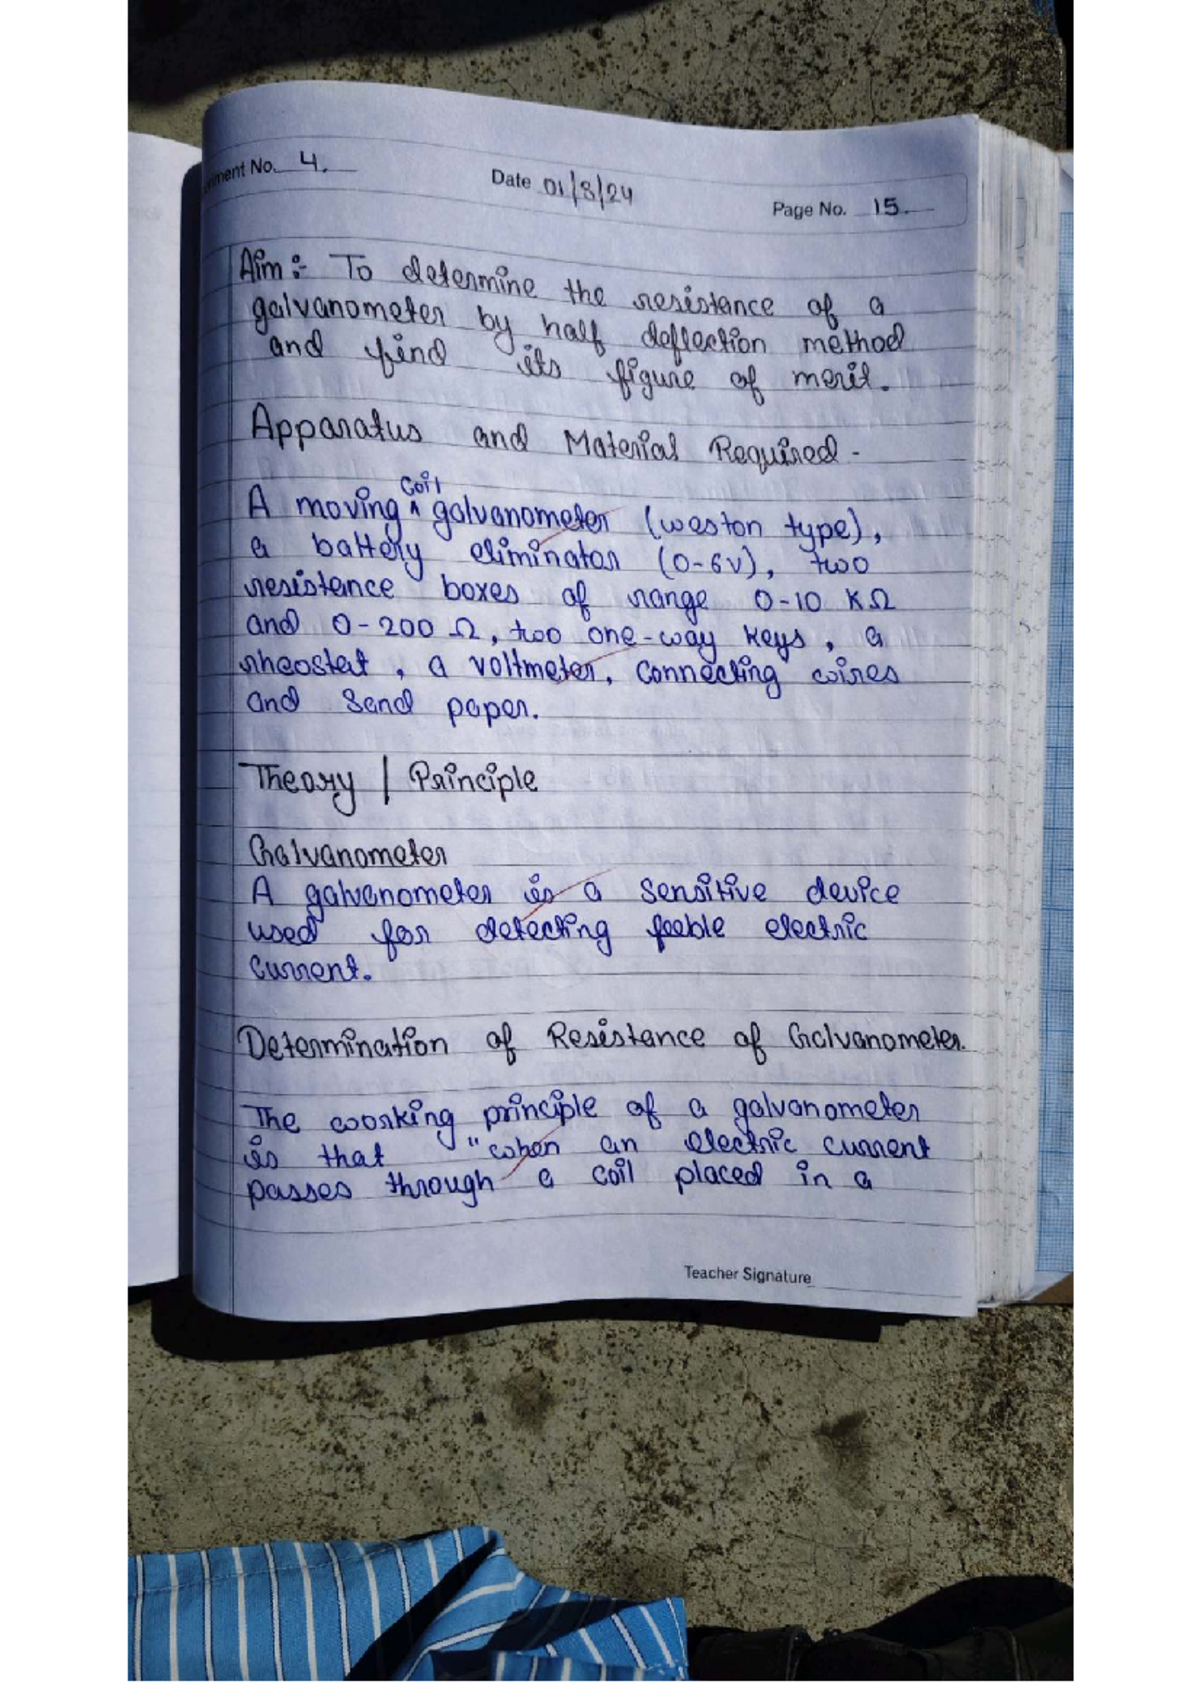 ment No. 4.
Date 01/8/24
Page No. 15.
Aim :- To determine the resistance of a
galvanometer by half deflection method
and find its figure of merit.
Apparatus and Material Required -
A moving ^ coil galvanometer (weston type),
a battery eliminator (0-6V), two
resistance boxes of range 0-10 KΩ
and 0-200 Ω, two one-way keys, a
rheostat, a voltmeter, connecting wires
and sand paper.
Theory | Principle
Galvanometer
A galvanometer is a sensitive device
used for detecting feeble electric
current.
Determination of Resistance of Galvanometer.
The working principle of a galvanometer
is that "when an electric current
passes through a coil placed in a
Teacher Signature